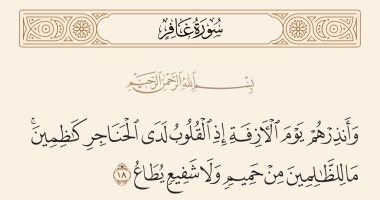 سُورَةُ غَافِرٍ
بِسْمِ اللَّهِ الرَّحْمَٰنِ الرَّحِيمِ
وَأَنذِرْهُمْ يَوْمَ الْآزِفَةِ إِذِ الْقُلُوبُ لَدَى الْحَنَاجِرِ كَاظِمِينَ ۚ
مَا لِلظَّالِمِينَ مِنْ حَمِيمٍ وَلَا شَفِيعٍ يُطَاعُ ١٨